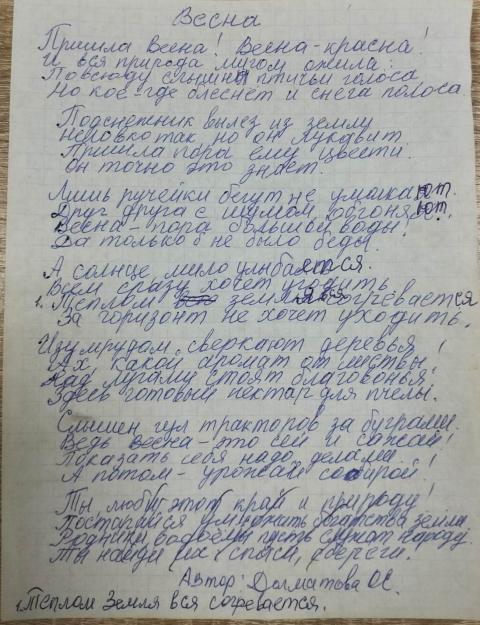 Весна
Пришла Весна! Весна-красна!
И вся природа мигом ожила.
Повсюду слышны птичьи голоса
Но кое-где блеснёт и снега полоса.
Подснежник вылез из земли
Неловко так, но он лукавит.
Пришла пора ему цвести.
Он точно это знает.
Лишь ручейки бегут не умолкают.
Друг друга с шумом обгоняют.
Весна - пора большой воды!
Да только б не было беды.
А солнце мило улыбается.
Всем сразу хочет угодить
1. Теплом земля вся согревается
За горизонт не хочет уходить.
Изумрудом сверкают деревья!
Ах, какой аромат от листвы!
Над лугами стоят благовонья.
Здесь готовый нектар для пчелы.
Слышен гул тракторов за буграми.
Ведь весна - это сей и сажай!
Показать себя надо делами.
А потом - урожай собирай!
Ты люби этот край и природу!
Постарайся умножить богатства земли.
Родники, водоёмы пусть служат народу.
Ты найди их, спаси, сбереги.
Автор: Долматова О.С.
1. Теплом Земля вся согревается.